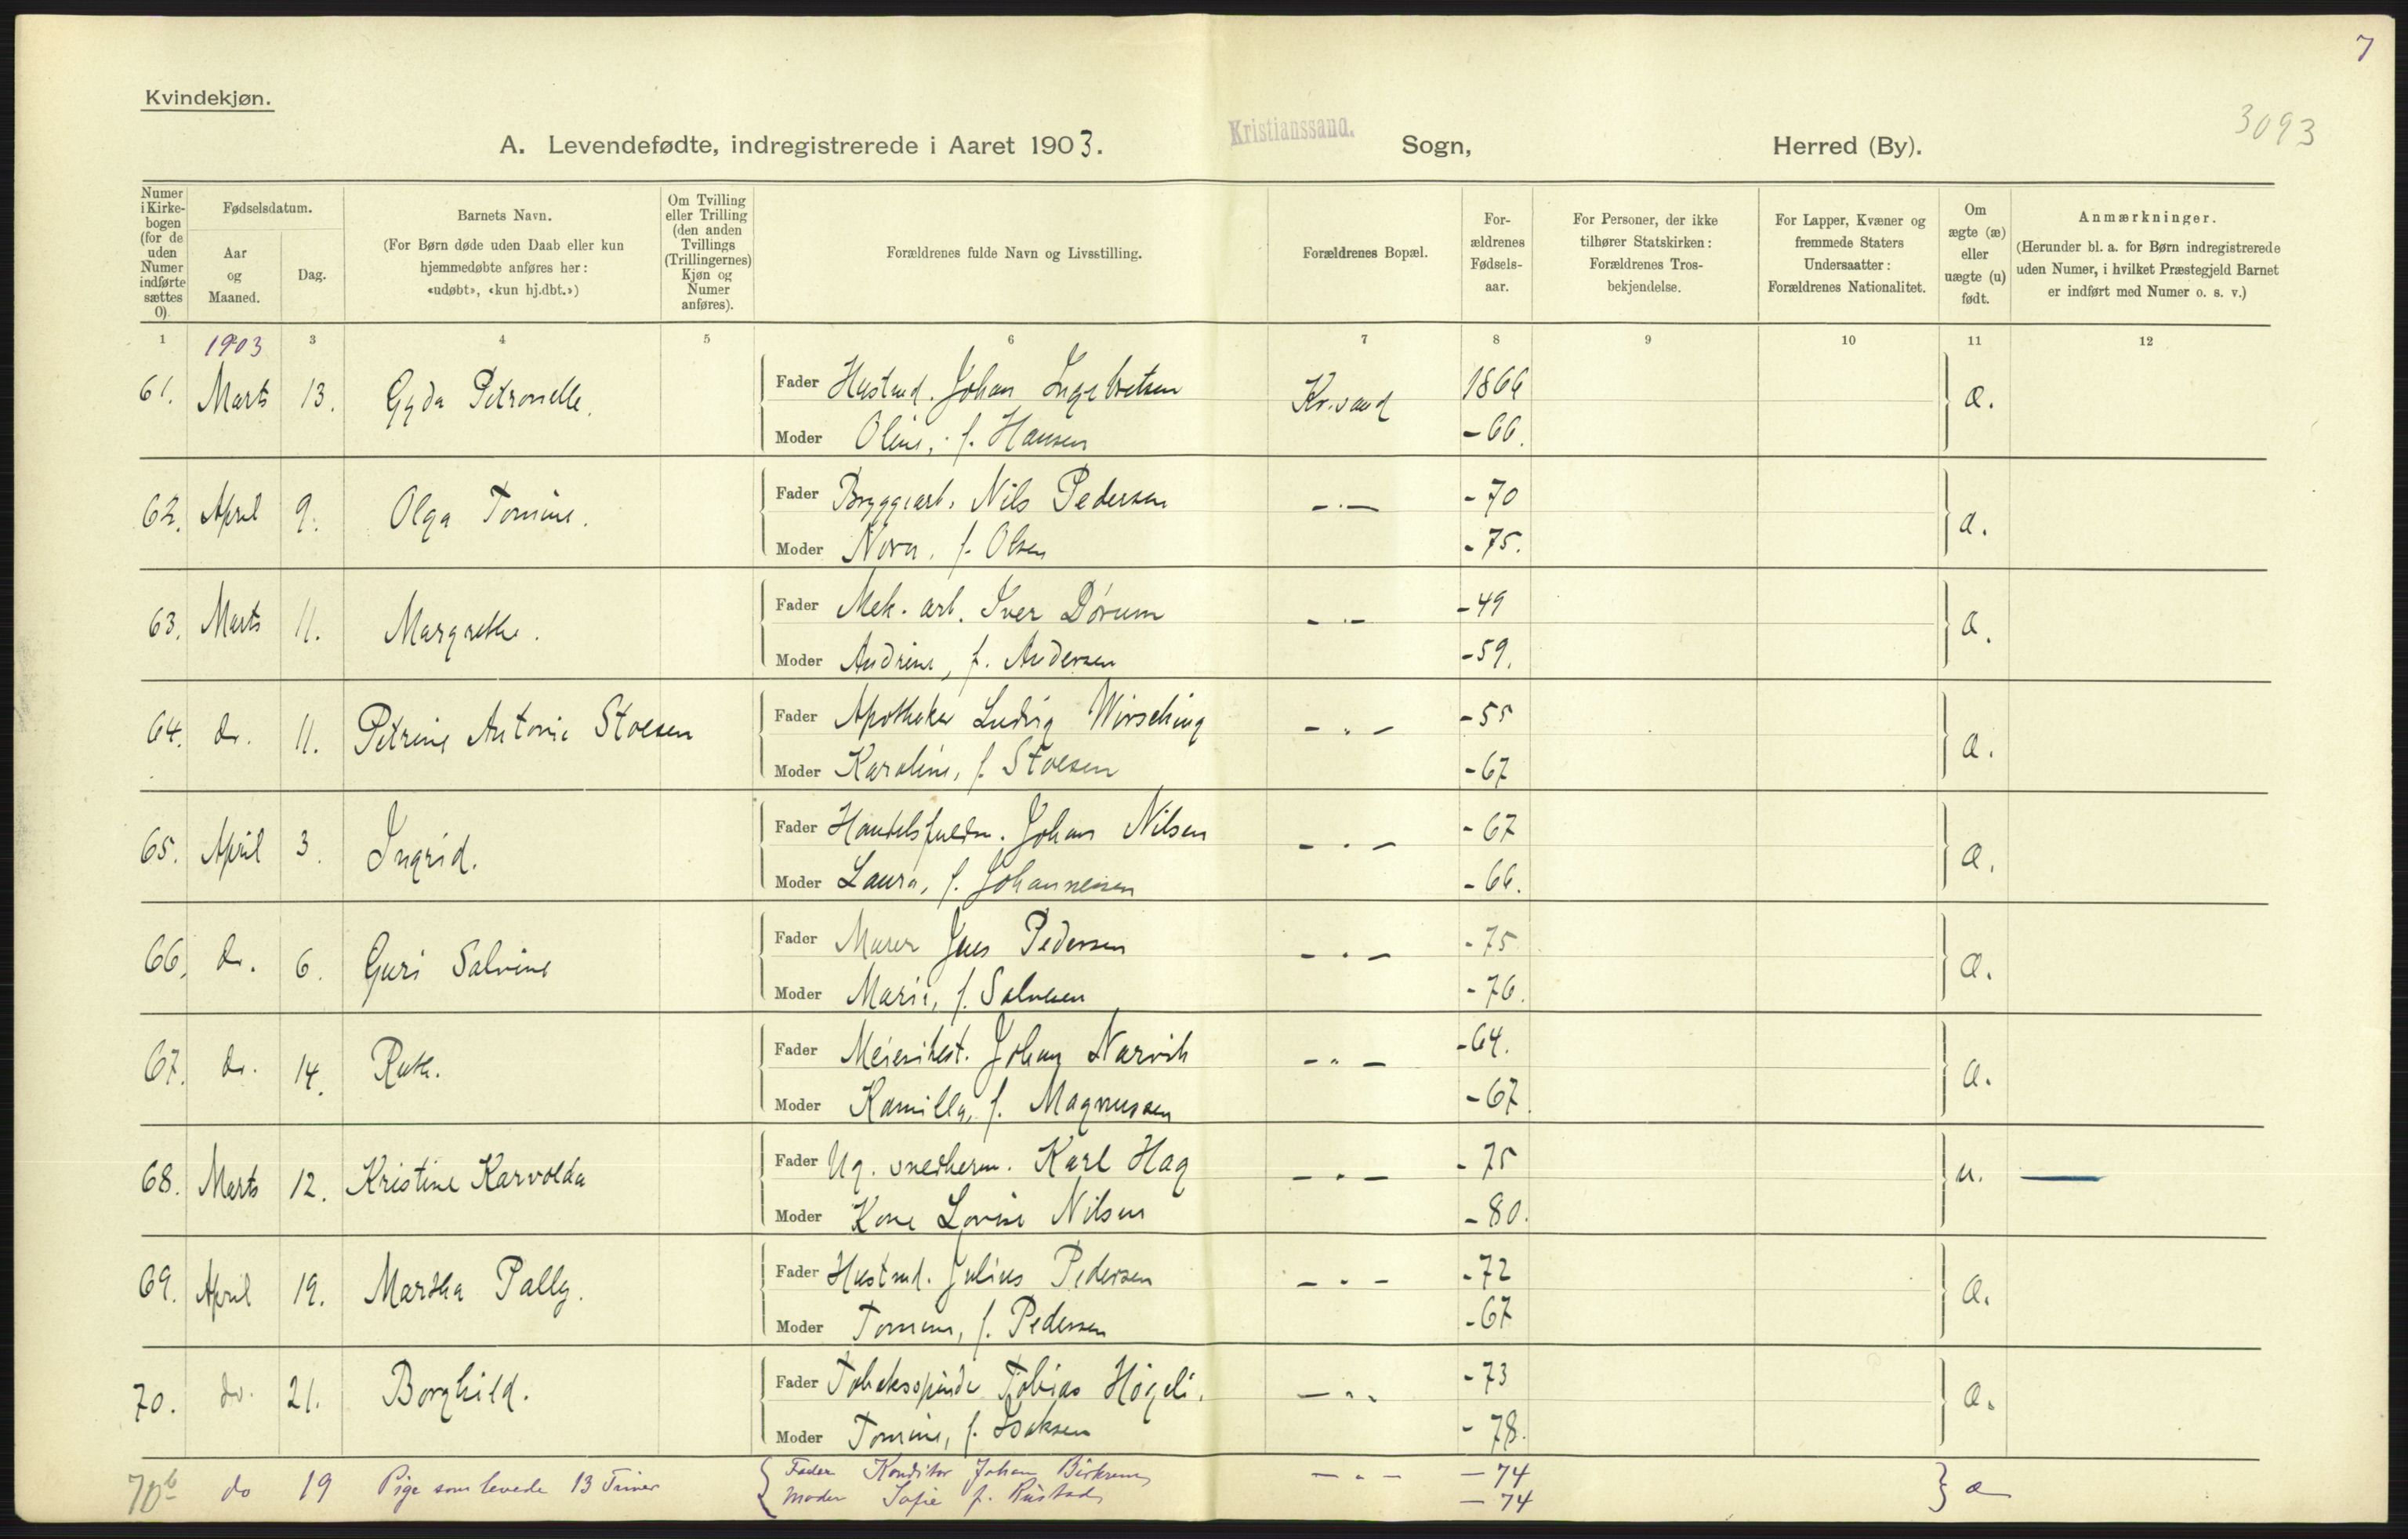 7
Kvindekjøn.
3093
A. Levendefødte, indregistrerede i Aaret 1903. Kristianssand. Sogn, Herred (By).
Numer i Kirkebogen (for de uden Numer indførte sættes 0). Fødselsdatum. Aar og Maaned. Dag. Barnets Navn. (For Børn døde uden Daab eller kun hjemmedøbte anføres her: «udøbt», «kun hj.dbt.») Om Tvilling eller Trilling (den anden Tvillings (Trillingernes) Kjøn og Numer anføres). Forældrenes fulde Navn og Livsstilling. Forældrenes Bopæl. Forældrenes Fødselsaar. For Personer, der ikke tilhører Statskirken: Forældrenes Trosbekjendelse. For Lapper, Kvæner og fremmede Staters Undersaatter: Forældrenes Nationalitet. Om ægte (æ) eller uægte (u) født. Anmærkninger. (Herunder bl. a. for Børn indregistrerede uden Numer, i hvilket Præstegjeld Barnet er indført med Numer o. s. v.)
1 3 4 5 6 7 8 9 10 11 12
1903
61. Marts 13. Gyda Petronelle. Fader Hustmd. Johan Ingebretsen Kr.sand 1866 æ.
Moder Oline, f. Hansen - 66.
62. April 9. Olga Tomine. Fader Bryggearb. Nils Pedersen - " - - 70 æ.
Moder Nora, f. Olsen - 75.
63. Marts 11. Margrethe. Fader Mek. arb. Iver Dørum - " - - 49 æ.
Moder Andrine, f. Andersen - 59.
64. do. 11. Petrine Antonie Stoesen Fader Apotheker Ludvig Wirsching - " - - 55 æ.
Moder Karoline, f. Stoesen - 67
65. April 3. Ingrid. Fader Handelsfuldm. Johan Nilsen - " - - 67 æ.
Moder Laura, f. Johannesen - 66.
66. do. 6. Guri Salvine Fader Murer Jens Pedersen - " - - 75 æ.
Moder Marie, f. Salvesen - 76.
67. do. 14. Ruth. Fader Meieribest. Johan Narvik - " - - 64. æ.
Moder Kamilla, f. Magnussen - 67.
68. Marts 12. Kristine Karvolda Fader Ug. snedkerm. Karl Hag - " - - 75 u. —
Moder Kone Lovise Nilsen - 80.
69. April 19. Martha Pally. Fader Hustmd. Julius Pedersen - " - - 72 æ.
Moder Tomine, f. Pedersen - 67
70. do. 21. Borghild. Fader Tobaksspinder Tobias Høgeli. - " - - 73 æ.
Moder Tomine, f. Isaksen - 78.
70b do 19 Pige som levede 13 Timer Fader Konditor Johan Birkrem - " - - 74 æ
Moder Sofie f. Rustad - 74